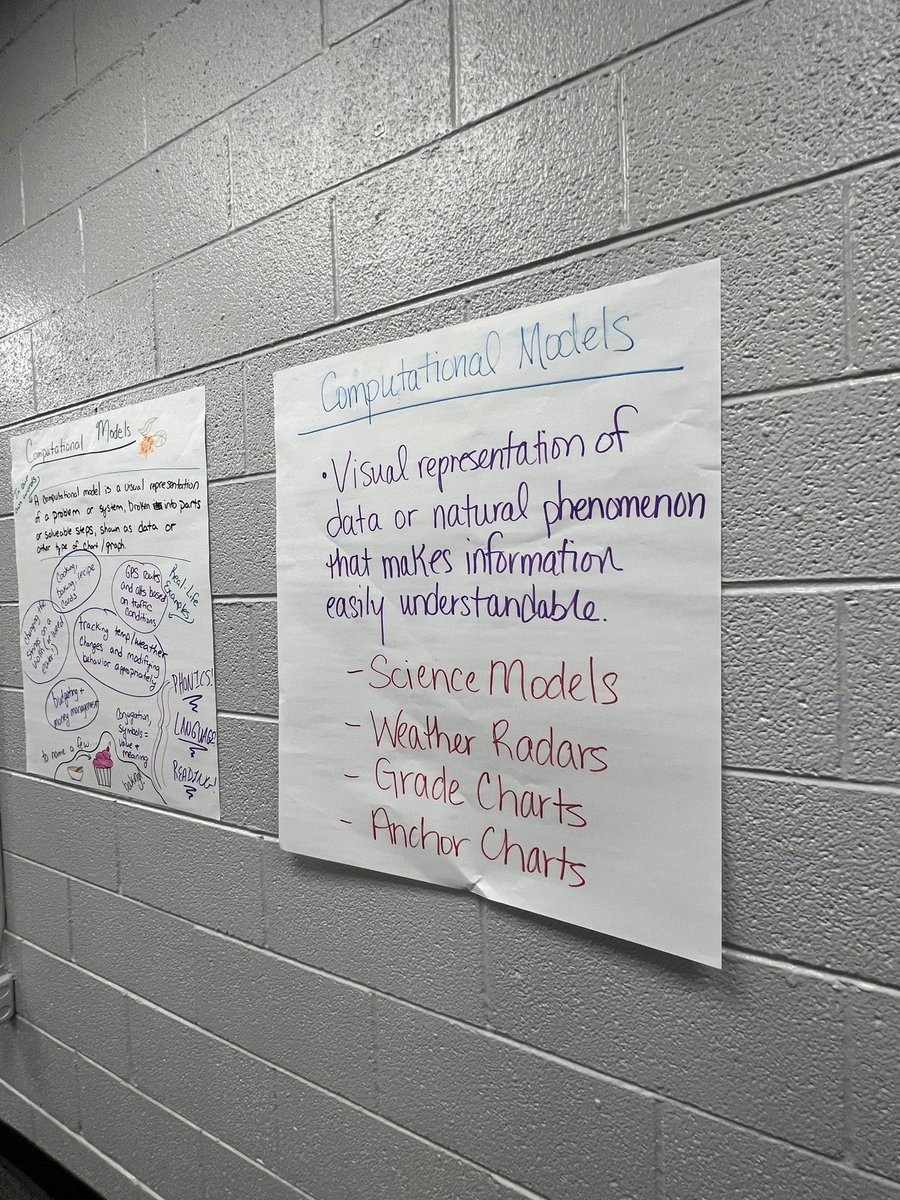 Computational Models
In our
own words
A computational model is a visual representation
of a problem or system, broken into parts
or solveable steps, shown as data or
other type of chart/graph.
Real-Life
Examples
Cooking,
baking, recipe
cards
GPS routes
and alts based
on traffic
conditions
Changing the
strings on a
violin
tracking temp/weather
changes and modifying
behavior appropriately
budgeting +
money management
to name a few
Conjugation,
symbols =
value +
meaning
baking
PHONICS!
LANGUAGE
READING!
Computational Models
• Visual representation of
data or natural phenomenon
that makes information
easily understandable.
- Science Models
- Weather Radars
- Grade Charts
- Anchor Charts